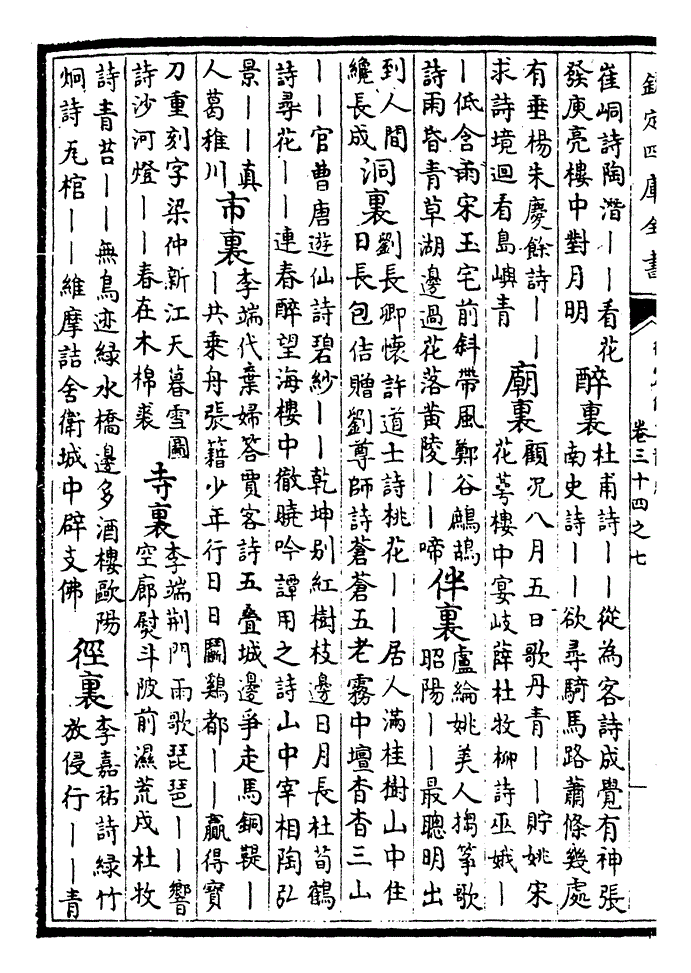 欽定四庫全書
卷三十四之七
崔峒詩陶潛||看花
發庾亮樓中對月明
醉裏
杜甫詩||從為客詩成覺有神張
南史詩||欲尋騎馬路蕭條幾處
有垂楊朱慶餘詩||
求詩境迴看島嶼青
廟裏
顧况八月五日歌丹青||貯姚宋
花萼樓中宴岐薛杜牧柳詩巫娥|
|低含雨宋玉宅前斜帶風鄭谷鷓鴣
詩雨昏青草湖邊過花落黄陵||啼
伴裏
盧綸姚美人搊箏歌
昭陽||最聰明出
到人間
纔長成
洞裏
劉長卿懷許道士詩桃花||居人滿桂樹山中住
日長包佶贈劉尊師詩蒼蒼五老霧中壇杳杳三山
||官曹唐遊仙詩碧紗||乾坤别紅樹枝邊日月長杜荀鶴
詩尋花||連春醉望海樓中徹曉吟譚用之詩山中宰相陶弘
景||真
人葛稚川
市裏
李端代棄婦答賈客詩五疊城邊爭走馬銅鞮|
|共乗舟張籍少年行日日鬬鷄都||贏得寳
刀重刻字梁仲新江天暮雪圖
詩沙河燈||春在木棉裘
寺裏
李端荆門雨歌琵琶||響
空廊熨斗陂前濕荒戍杜牧
詩青苔||無鳥迹緑水橋邊多酒樓歐陽
炯詩瓦棺||維摩詰舍衛城中辟支佛
徑裏
李嘉祐詩緑竹
放侵行||青